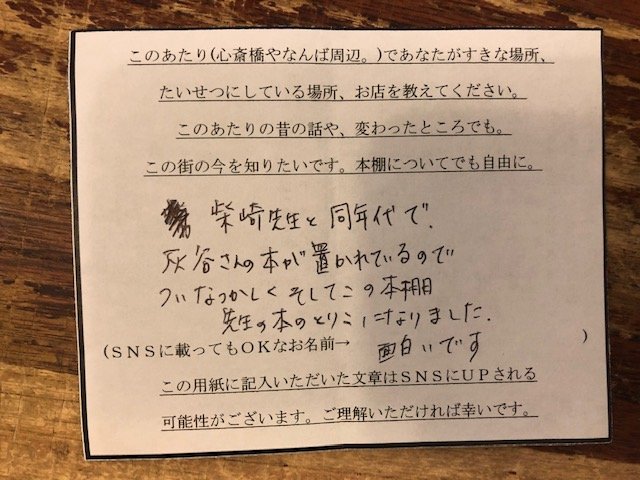 このあたり(心斎橋やなんば周辺。)であなたがすきな場所、
たいせつにしている場所、お店を教えてください。
このあたりの昔の話や、変わったところでも。
この街の今を知りたいです。本棚についてでも自由に。
柴崎先生と同年代で、
灰谷さんの本が置かれているので
ついなつかしくそしてこの本棚
先生の本のとりこになりました.
(ＳＮＳに載ってもＯＫなお名前→ 面白いです )
この用紙に記入いただいた文章はＳＮＳにＵＰされる
可能性がございます。ご理解いただければ幸いです。